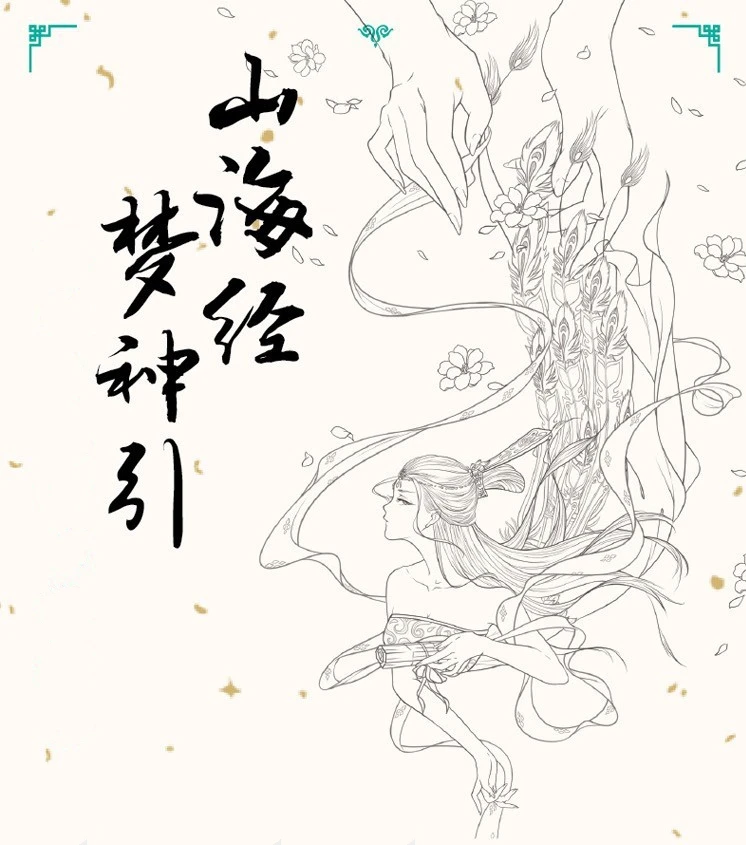 山海经
梦神引